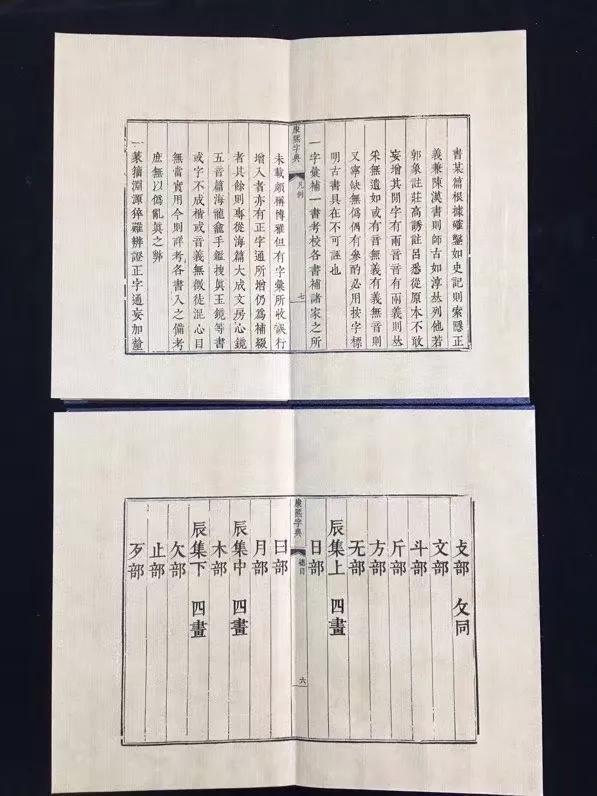 書某篇根據確鑿如史記則索隱正
義兼陳漢書則師古如淳𠀤列他若
郭象註莊高誘註呂悉從原本不敢
妄增其閒字有兩音音有兩義則𠀤
采無遺如或有音無義有義無音則
又寧缺無僞偶有參酌必用按字標
明古書具在不可誣也
一字彙補一書考校各書補諸家之所
康熙字典 凡例 七
未載頗稱博雅但有字彙所收誤行
增入者亦有正字通所增仍爲補綴
者其餘則專從海篇大成文房心鏡
五音篇海龍龕手鑑搜眞玉鏡等書
或字不成楷或音義無徵徒混心目
無當實用今則詳考各書入之備考
庶無以僞亂眞之弊
一篆籀淵源猝難辨證正字通妄加釐
攴部 攵同
文部
斗部
斤部
方部
无部
辰集上 四畫
日部
康熙字典 總目 六
曰部
月部
辰集中 四畫
木部
辰集下 四畫
欠部
止部
歹部